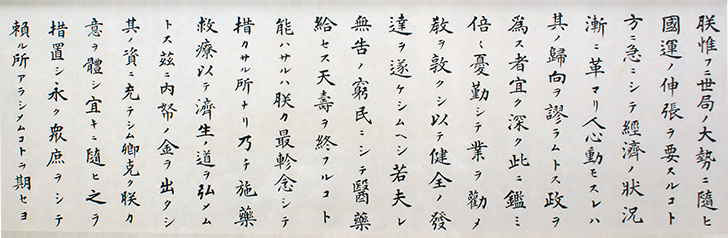 朕惟フニ世局ノ大勢ニ隨ヒ
國運ノ伸張ヲ要スルコト
方ニ急ニシテ經濟ノ狀況
漸ニ革マリ人心動モスレハ
其ノ歸向ヲ謬ラムトス政ヲ
爲ス者宜ク深ク此ニ鑑ミ
倍〻憂勤シテ業ヲ勸メ
敎ヲ敦クシ以テ健全ノ發
達ヲ遂ケシムヘシ若夫レ
無告ノ窮民ニシテ醫藥
給セス天壽ヲ終フルコト
能ハサルハ朕カ最軫念シテ
措カサル所ナリ乃チ施藥
救療以テ濟生ノ道ヲ弘メム
トス茲ニ內帑ノ金ヲ出タシ
其ノ資ニ充テシム卿克ク朕カ
意ヲ體シ宜キニ隨ヒ之ヲ
措置シ永ク衆庶ヲシテ
賴ル所アラシメムコトヲ期セヨ